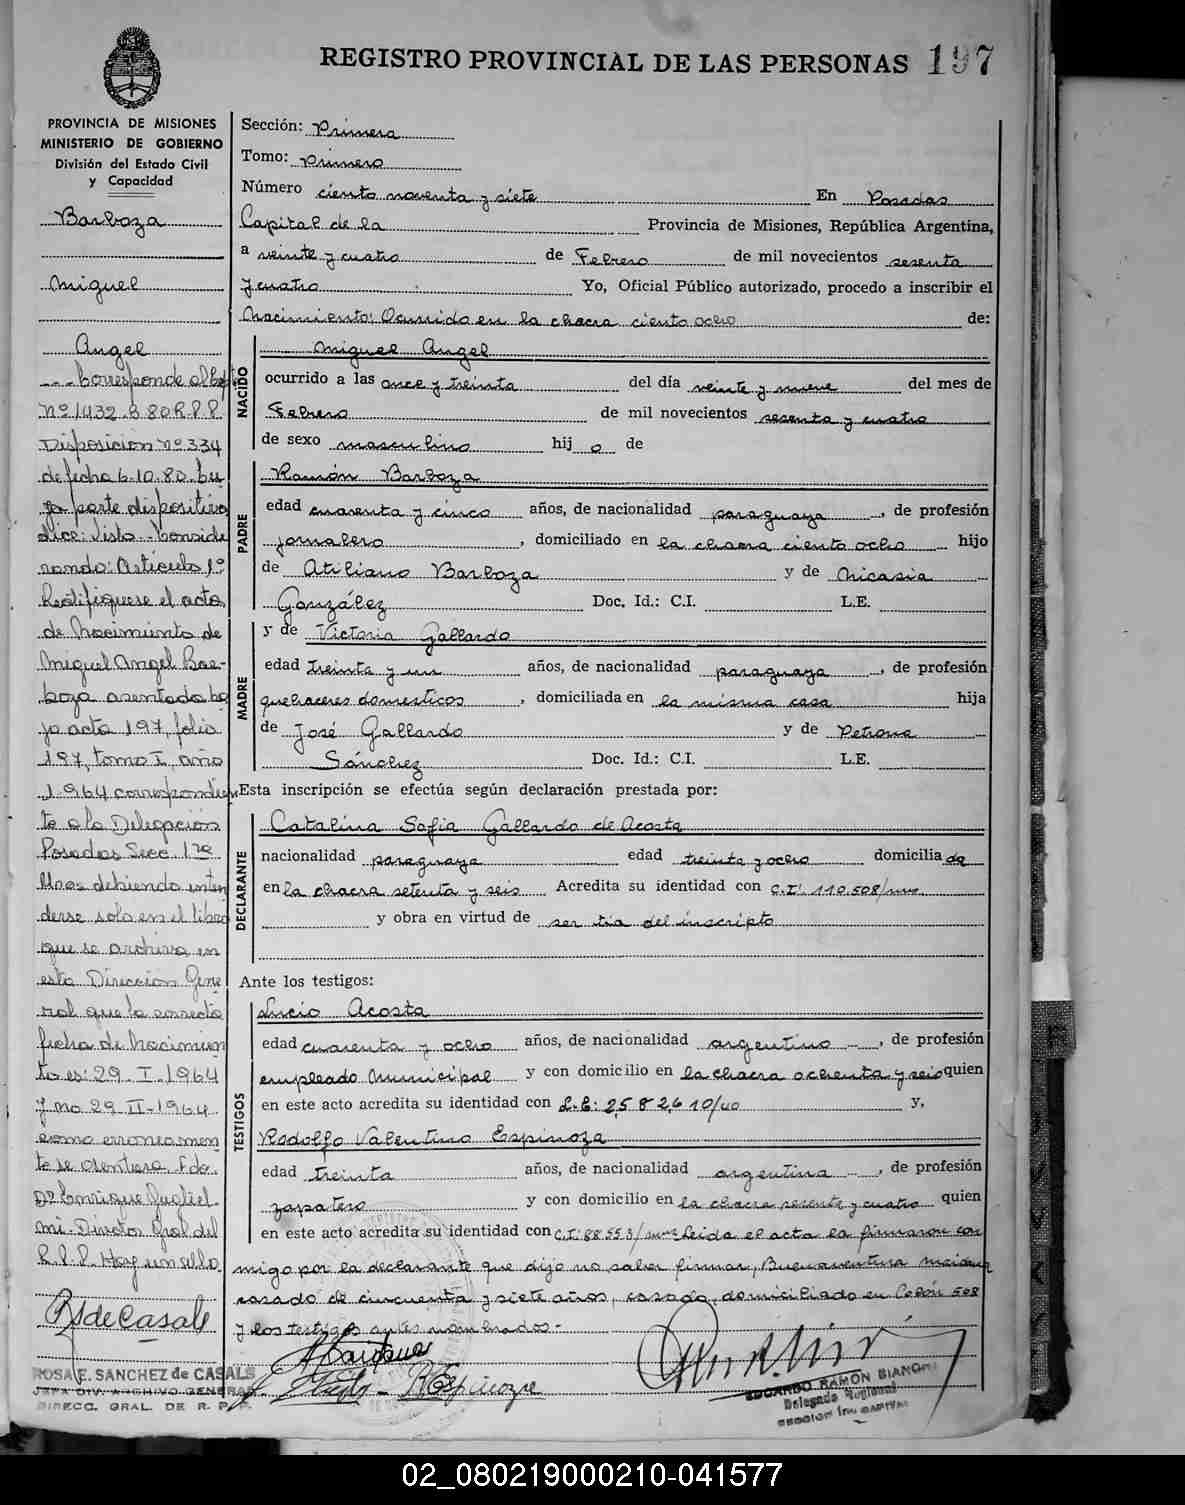 REGISTRO PROVINCIAL DE LAS PERSONAS 197
PROVINCIA DE MISIONES
MINISTERIO DE GOBIERNO
División del Estado Civil
y Capacidad
Barboza
Miguel
Angel
Corresponde al Expte
Nº 1432-B 80 R.P.P.
Disposición Nº 334
de fecha 6-10-80. Cu
ya parte dispositiva
dice: Visto - Conside
rando: Artículo 1º
Rectifíquese el acta
de Nacimiento de
Miguel Angel Bar-
boza asentada ba
jo acta 197, folio
197, tomo I, año
1.964 correspondien
te a la Delegación
Posadas Secc. 1ra
debiendo enten
derse solo en el libro
que se archiva en
esta Dirección Gene
ral que la correcta
fecha de Nacimien
to es: 29-I-1964
y no 29-II-1964
como erroneamen
te se asentara. Fdo.
Dr Enrique Gugliel
mi. Director Gral del
R.P.P. Hay un sello.
RSdeCasals
ROSA E. SANCHEZ de CASALS
JEFA DIV. ARCHIVO GENERAL
DIRECC. GRAL. DE R. P. P.
Sección: Primera
Tomo: Primero
Número ciento noventa y siete En Posadas
Capital de la Provincia de Misiones, República Argentina,
a veinte y cuatro de Febrero de mil novecientos sesenta
y cuatro Yo, Oficial Público autorizado, procedo a inscribir el
Nacimiento: Ocurrido en la chacra ciento ocho de:
NACIDO
Miguel Angel
ocurrido a las once y treinta del día veinte y nueve del mes de
Febrero de mil novecientos sesenta y cuatro
de sexo masculino hij o de
PADRE
Ramón Barboza
edad cuarenta y cinco años, de nacionalidad paraguaya, de profesión
jornalero, domiciliado en la chacra ciento ocho hijo
de Atiliano Barboza y de Nicasia
González Doc. Id.: C.I. L.E.
MADRE
y de Victoria Gallardo
edad treinta y un años, de nacionalidad paraguaya, de profesión
quehaceres domesticos, domiciliada en la misma casa hija
de José Gallardo y de Petrona
Sánchez Doc. Id.: C.I. L.E.
Esta inscripción se efectúa según declaración prestada por:
DECLARANTE
Catalina Sofia Gallardo de Acosta
nacionalidad paraguaya edad treinta y ocho domicilia da
en la chacra setenta y seis Acredita su identidad con C.I: 110.508/mnes
y obra en virtud de ser tia del inscripto
Ante los testigos:
TESTIGOS
Lucio Acosta
edad cuarenta y ocho años, de nacionalidad argentino, de profesión
empleado Municipal y con domicilio en la chacra ochenta y seis quien
en este acto acredita su identidad con L.E: 2.582.610/40 y,
Rodolfo Valentino Espinoza
edad treinta años, de nacionalidad argentina, de profesión
zapatero y con domicilio en la chacra sesenta y cuatro quien
en este acto acredita su identidad con C.I: 88.553/mnes Leida el acta la firmaron con
migo por la declarante que dijo no saber firmar, Buenaventura
casado de cincuenta y siete años, casado, domiciliado en Colón 508
y los testigos antes nombrados.-
R.Espinoza
EDUARDO RAMÓN BIANCHI
Delegado Regional
SECCION 1ra CAPITAL
02_080219000210-041577